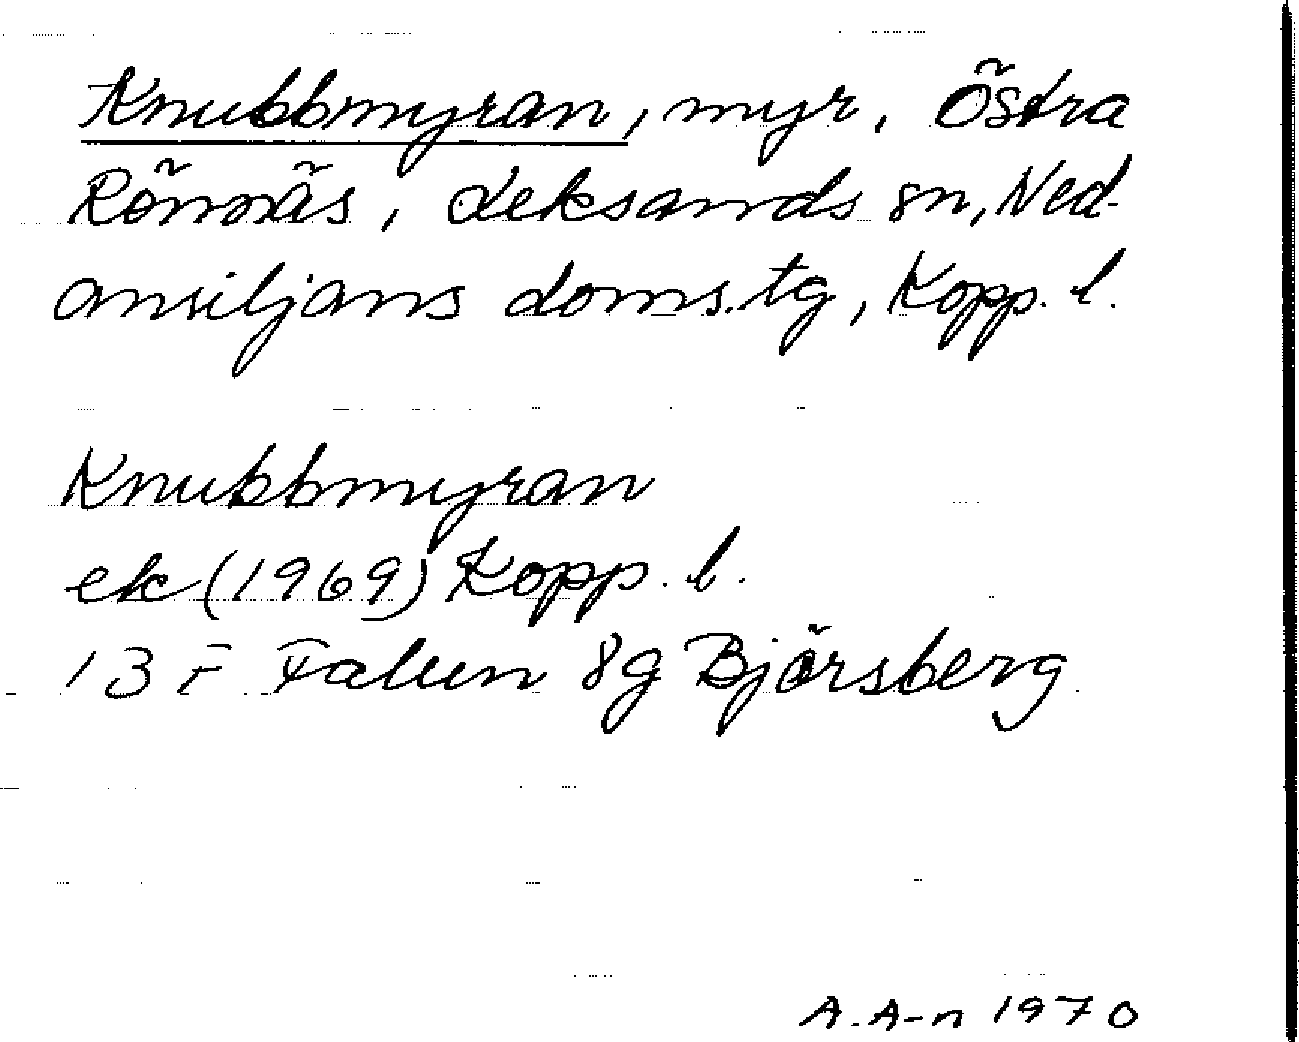 Knubbmyran, myr, Östra
Rönnäs, Leksands sn, Ned-
ansiljans doms.tg, Kopp. l.
Knubbmyran
ek (1969) Kopp. l.
13 F Falun 8g Björsberg
A. A-n 1970